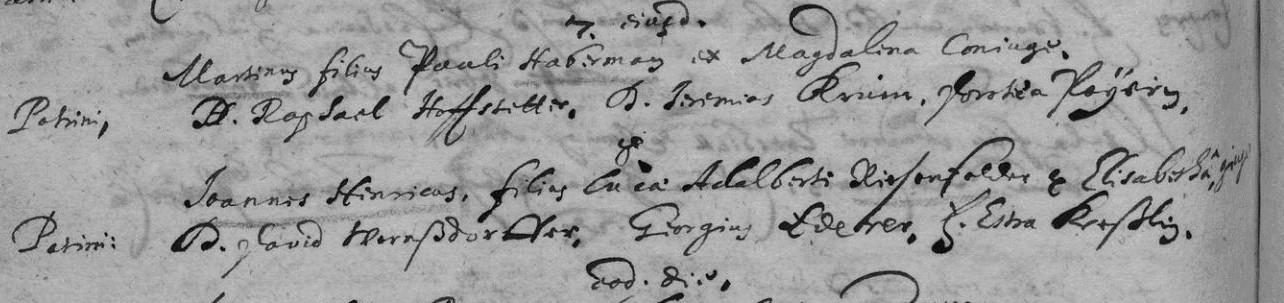 7. eiusd.
Martinus filius Pauli Haberman ex Magdalena Coniuge.
Patrini, H. Raphael Hoffstetter, D. Jeremias Krim, Dorotea Payrin,
8
Joannes Henricus, filius Lucæ Adalberti Riesenfelder ex Elisabethâ,
Patrini: D. David Wernßdorffer, Georgius Ederer, F. Estra Kreßlin.
eod. die.